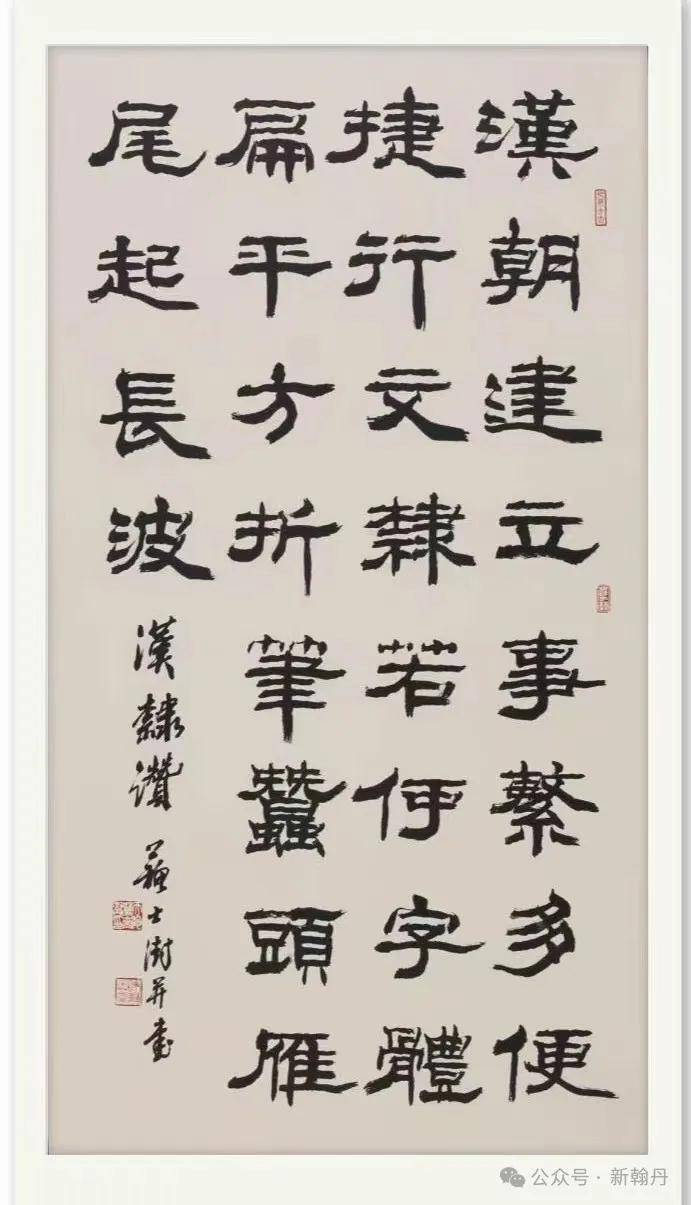 漢朝建立事繁多便
捷行文隸若何字體
扁平方折筆蠶頭雁
尾起長波
漢隸讚 蘇士澍并書
公众号 · 新翰丹